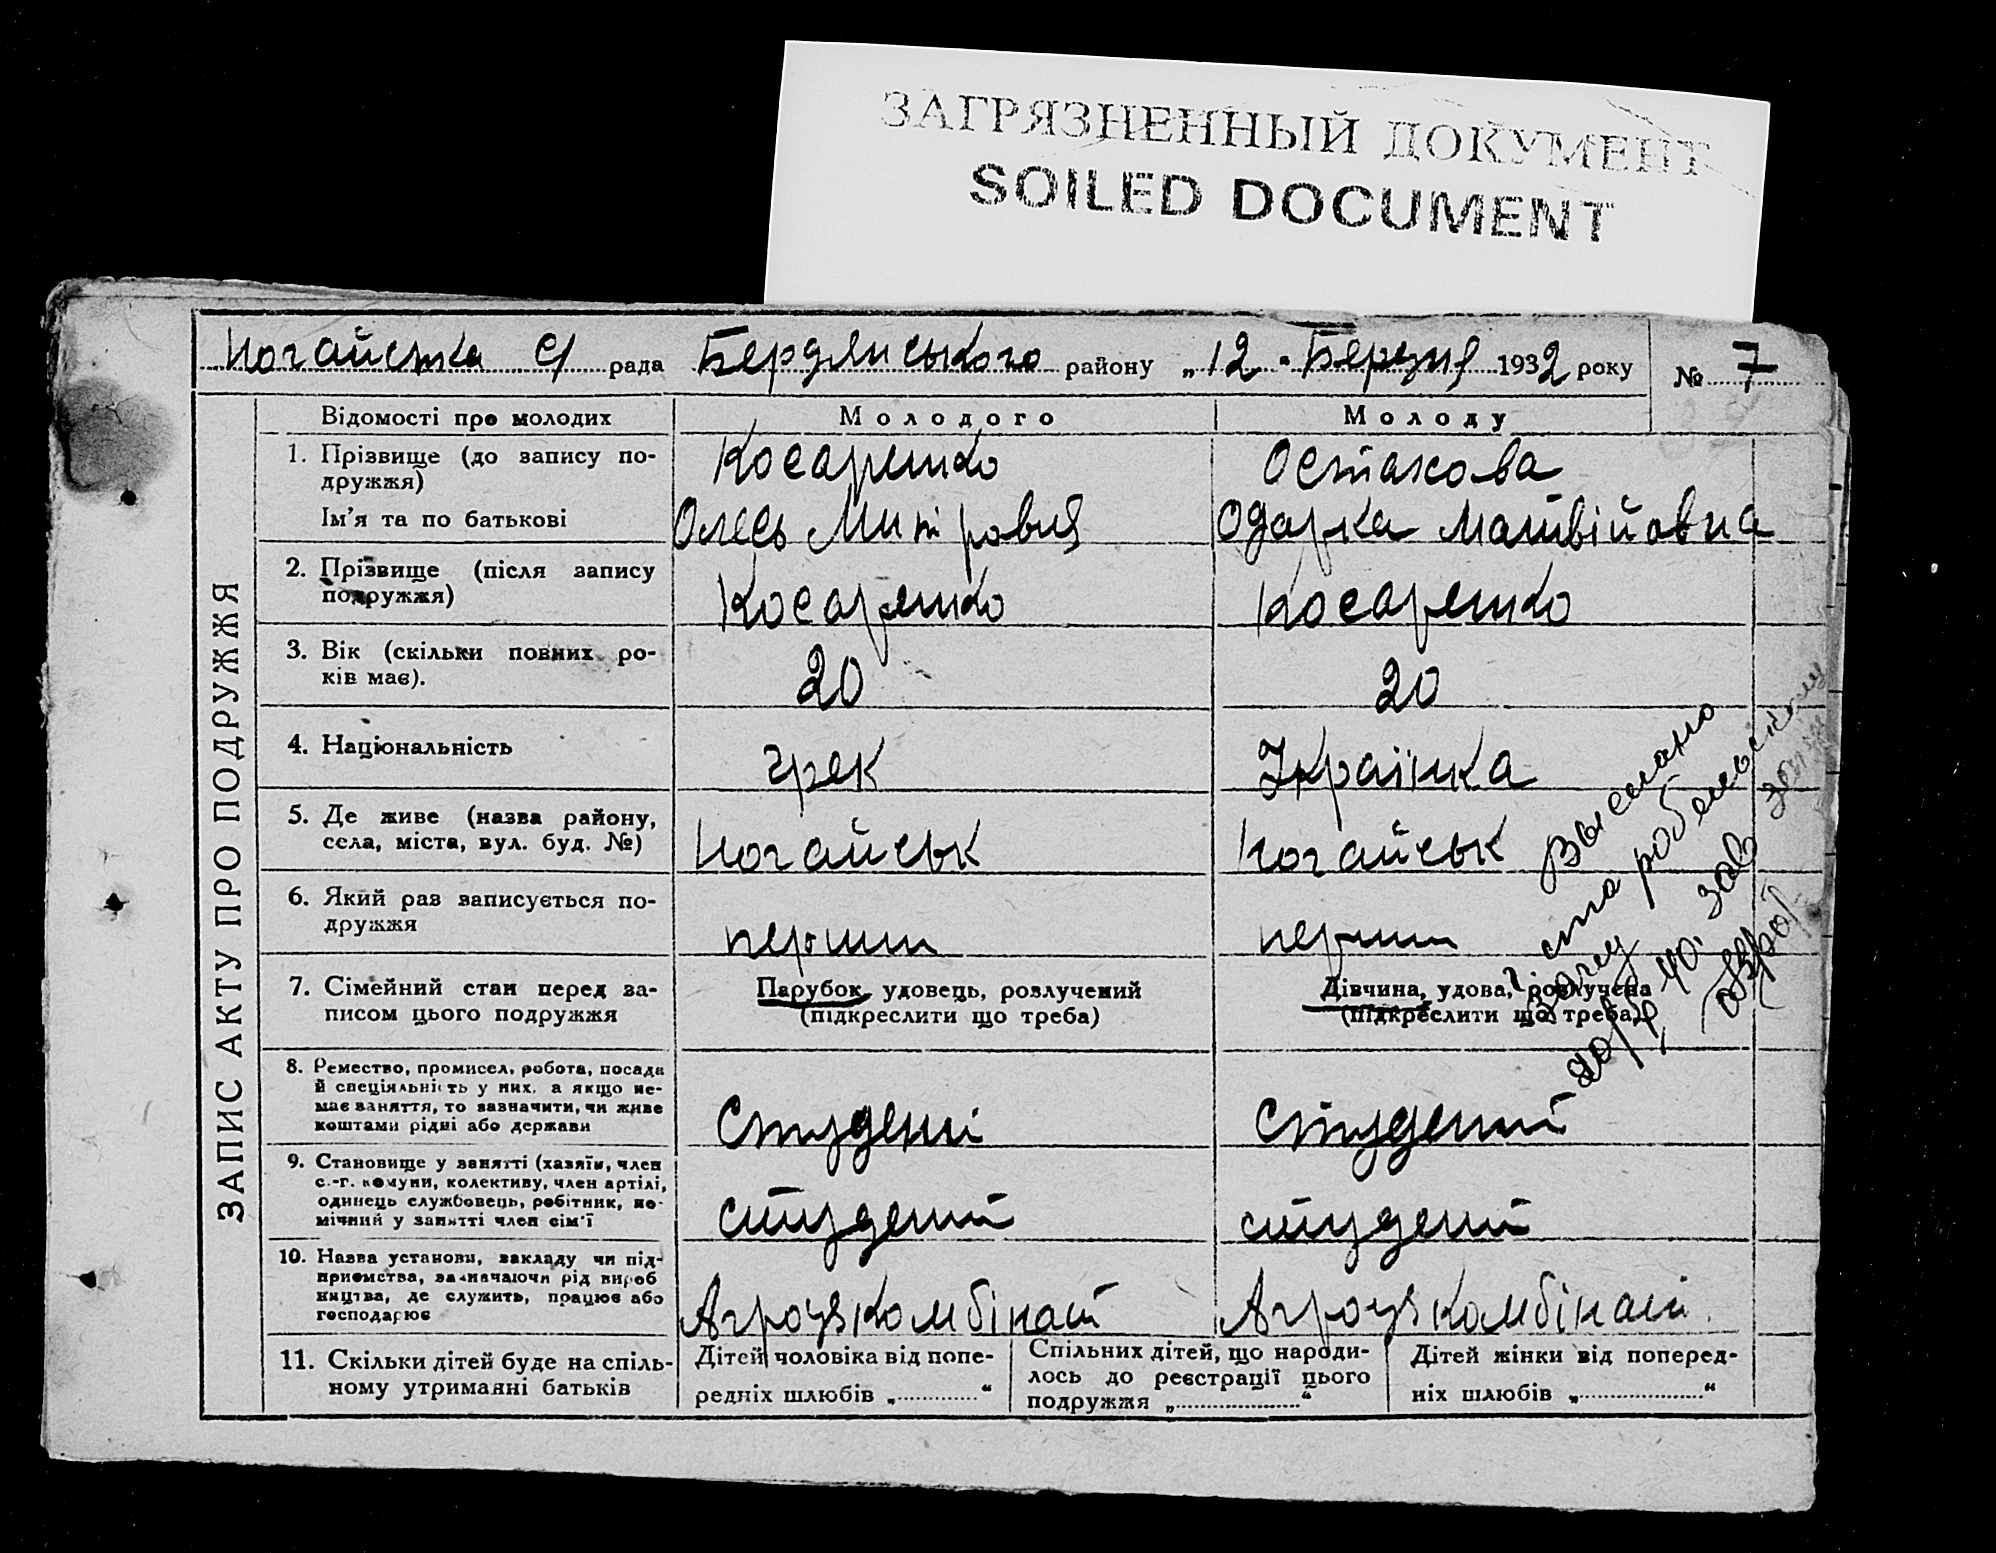 ЗАГРЯЗНЕННЫЙ ДОКУМЕНТ
SOILED DOCUMENT
Ногайська с/ рада Бердянського району „12" Березня 1932 року № 7
ЗАПИС АКТУ ПРО ПОДРУЖЖЯ
Відомості про молодих Молодого Молоду
1. Прізвище (до запису по-
дружжя)
Косаренко Остахова
Ім'я та по батькові
Олесь Митровия Одарка Матвійовна
2. Прізвище (після запису
подружжя)
Косаренко Косаренко
3. Вік (скільки повних ро-
ків має).
20 20
4. Національність
грек Українка
5. Де живе (назва району,
села, міста, вул. буд. №)
Ногайськ Ногайськ
6. Який раз записується по-
дружжя
перший перший
7. Сімейний стан перед за-
писом цього подружжя
Парубок, удовець, розлучений
(підкреслити що треба)
Дівчина, удова, розлучена
(підкреслити що треба)
8. Ремество, промисел, робота, посада
й спеціяльність у них, а якщо не-
має заняття, то зазначити, чи живе
коштами рідні або держави
Студент Студент
9. Становище у занятті (хазяїн, член
с.-г. комуни, колективу, член артілі,
одинець службовець, робітник, по-
мічний у занятті член сім'ї
студент студент
10. Назва установи, закладу чи під-
приємства, зазначаючи рід вироб
ництва, де служить, працює або
господарює
Агроцукомбінат Агроцукомбінат.
11. Скільки дітей буде на спіль-
ному утриманні батьків
Дітей чоловіка від попе-
редніх шлюбів „............"
Спільних дітей, що народи-
лось до реєстрації цього
подружжя „............"
Дітей жінки від поперед-
ніх шлюбів „............"
Выслано